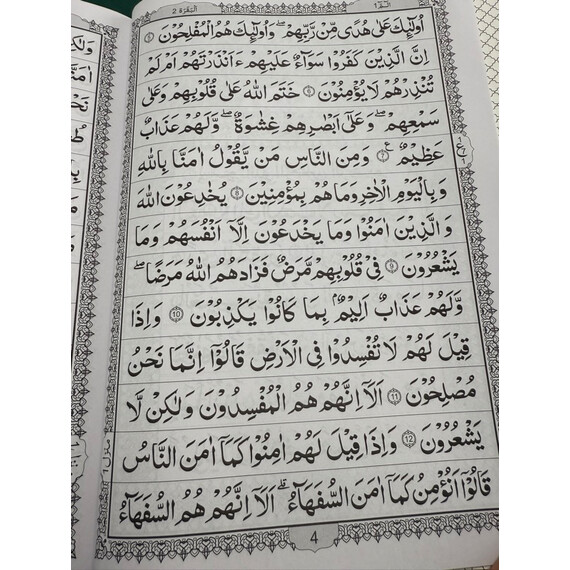 البقرة 2
الٓمّٓ 1
اُولٰٓئِكَ عَلٰى هُدًى مِّنْ رَّبِّهِمْ ۖ وَاُولٰٓئِكَ هُمُ الْمُفْلِحُوْنَ ۝5
اِنَّ الَّذِيْنَ كَفَرُوْا سَوَآءٌ عَلَيْهِمْ ءَاَنْذَرْتَهُمْ اَمْ لَمْ
تُنْذِرْهُمْ لَا يُؤْمِنُوْنَ ۝6 خَتَمَ اللّٰهُ عَلٰى قُلُوْبِهِمْ وَعَلٰى
سَمْعِهِمْ ۖ وَعَلٰٓى اَبْصٰرِهِمْ غِشٰوَةٌ ۖ وَّلَهُمْ عَذَابٌ
عَظِيْمٌ ۝7 وَمِنَ النَّاسِ مَنْ يَّقُوْلُ اٰمَنَّا بِاللّٰهِ
وَبِالْيَوْمِ الْاٰخِرِ وَمَا هُمْ بِمُؤْمِنِيْنَ ۝8 يُخٰدِعُوْنَ اللّٰهَ
وَالَّذِيْنَ اٰمَنُوْا وَمَا يَخْدَعُوْنَ اِلَّآ اَنْفُسَهُمْ وَمَا
يَشْعُرُوْنَ ۝9 فِيْ قُلُوْبِهِمْ مَّرَضٌ فَزَادَهُمُ اللّٰهُ مَرَضًا ۖ
وَّلَهُمْ عَذَابٌ اَلِيْمٌۢ بِمَا كَانُوْا يَكْذِبُوْنَ ۝10 وَاِذَا
قِيْلَ لَهُمْ لَا تُفْسِدُوْا فِى الْاَرْضِ قَالُوْٓا اِنَّمَا نَحْنُ
مُصْلِحُوْنَ ۝11 اَلَآ اِنَّهُمْ هُمُ الْمُفْسِدُوْنَ وَلٰكِنْ لَّا
يَشْعُرُوْنَ ۝12 وَاِذَا قِيْلَ لَهُمْ اٰمِنُوْا كَمَآ اٰمَنَ النَّاسُ
قَالُوْٓا اَنُؤْمِنُ كَمَآ اٰمَنَ السُّفَهَآءُ ۗ اَلَآ اِنَّهُمْ هُمُ السُّفَهَآءُ
منزل 1
4